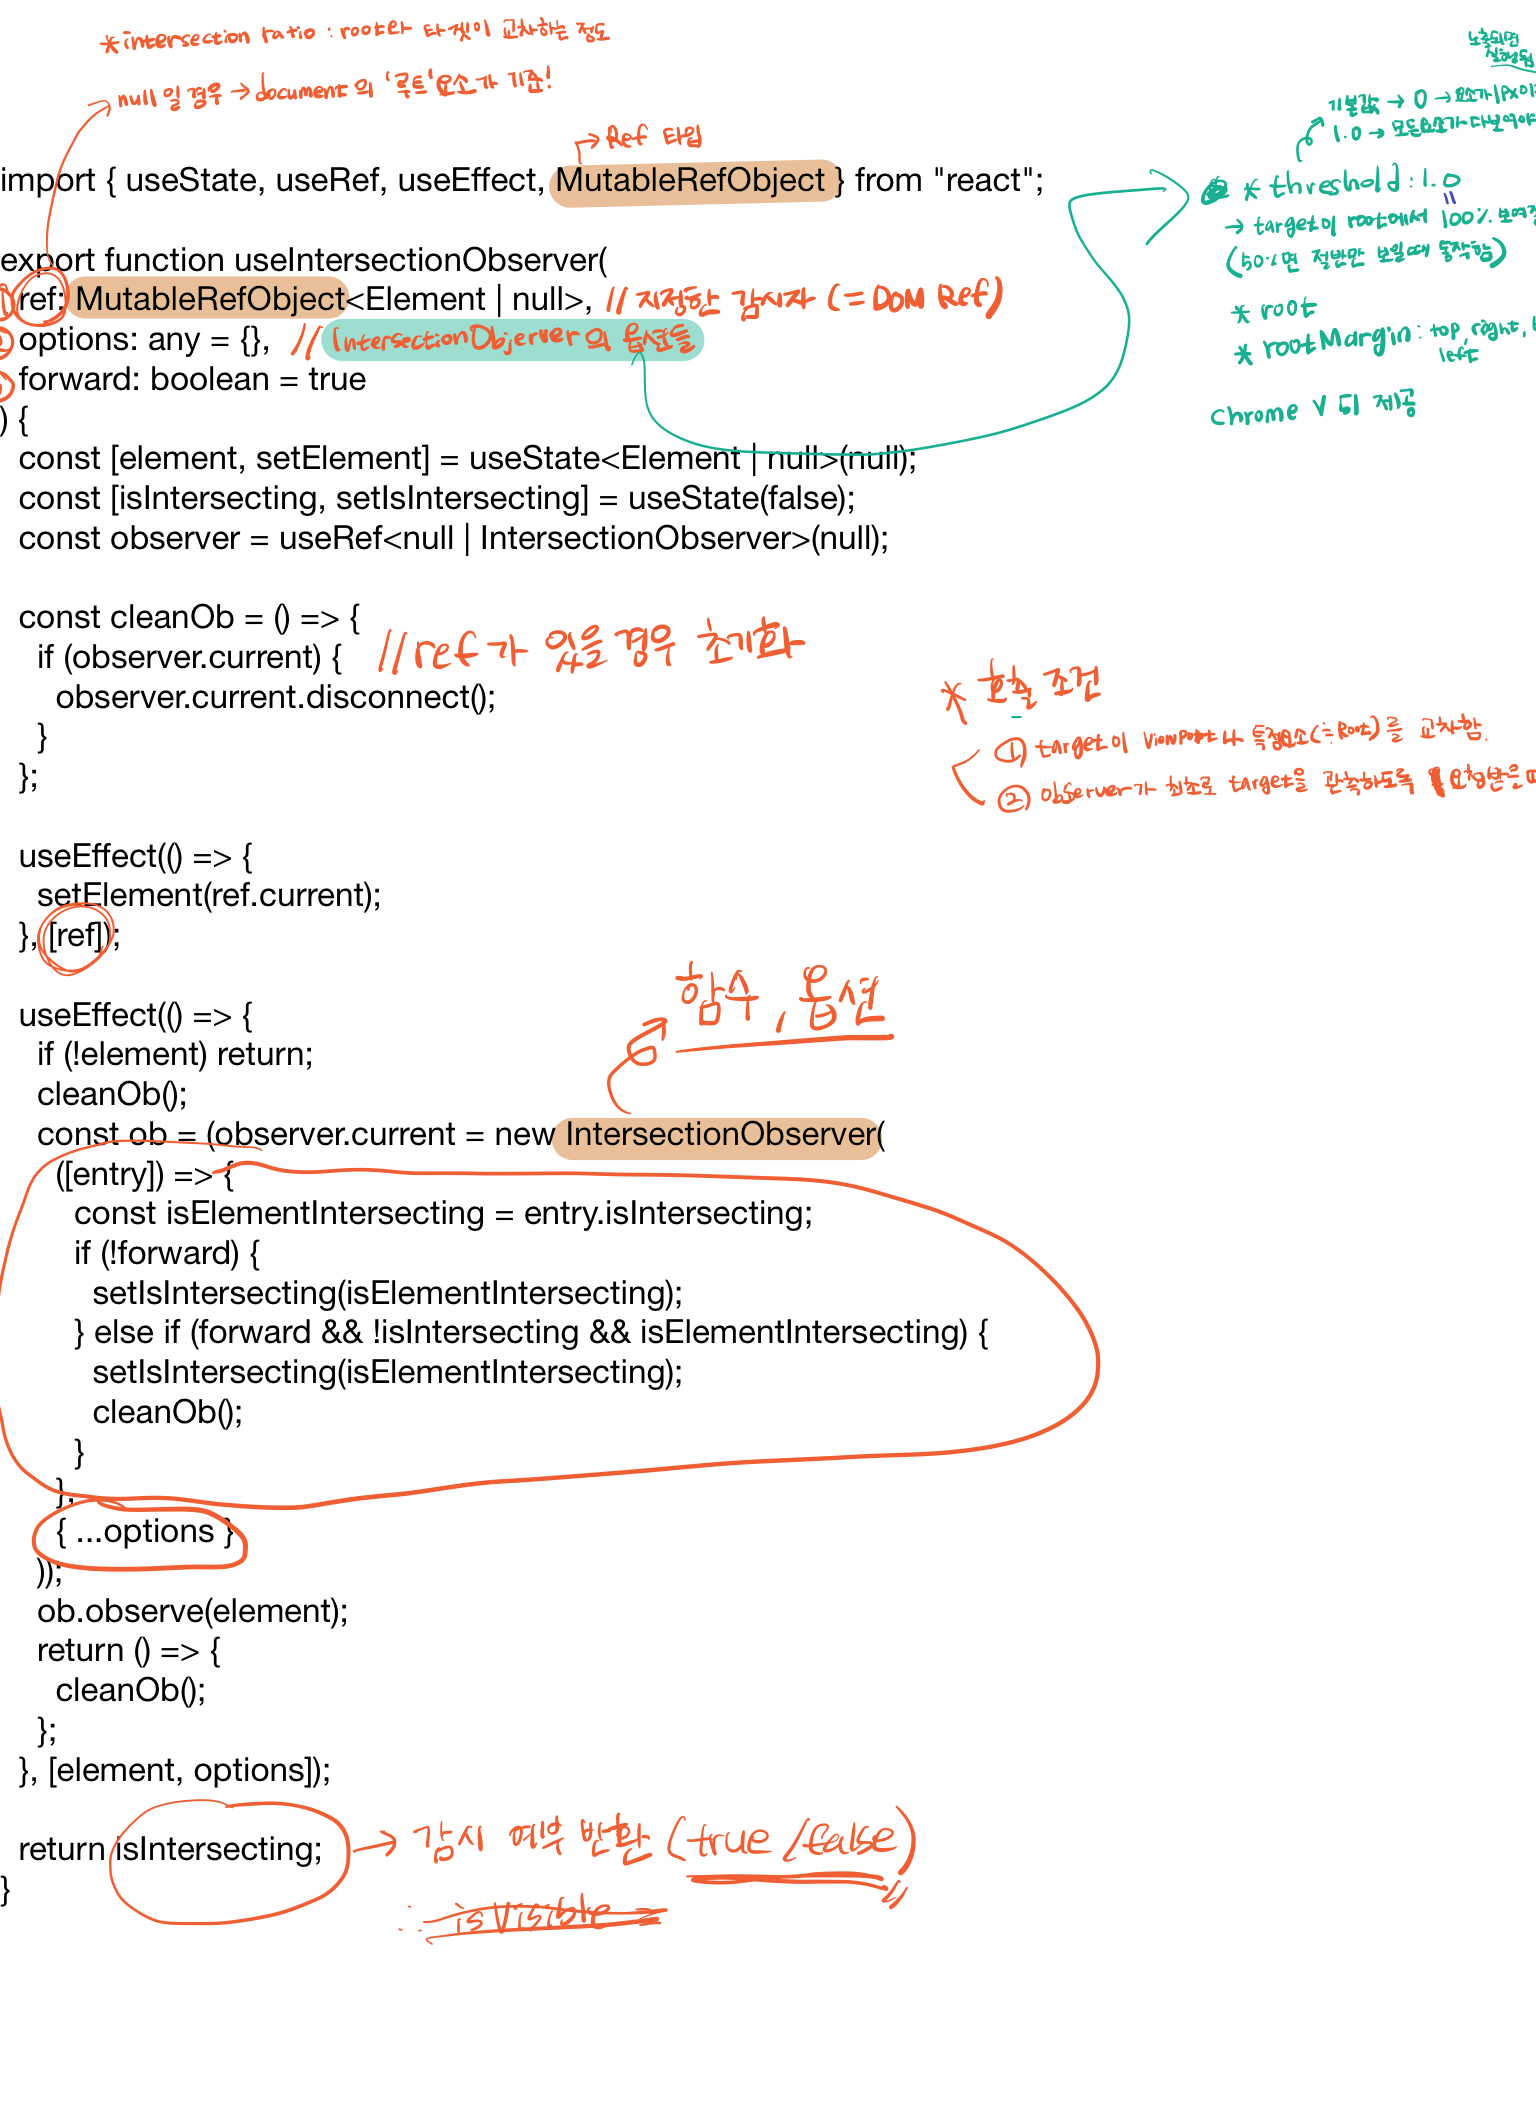 *intersection ratio : root와 타겟이 교차하는 정도
null 일 경우 → document 의 '루트'요소가 기준!
→ Ref 타입
노출되면
실행됨
기본값 → 0 → 요소가 1px이
1.0 → 모든요소가 다보여야
import { useState, useRef, useEffect, MutableRefObject } from "react";
* threshold : 1.0
→ target이 root에서 100% 보여질
(50%면 절반만 보일때 동작함)
export function useIntersectionObserver(
① ref: MutableRefObject<Element | null>, // 지정한 감시자 (= DOM Ref)
* root
② options: any = {}, // IntersectionObserver의 옵션들
* rootMargin : top, right,
left
forward: boolean = true
Chrome V 51 제공
) {
const [element, setElement] = useState<Element | null>(null);
const [isIntersecting, setIsIntersecting] = useState(false);
const observer = useRef<null | IntersectionObserver>(null);
const cleanOb = () => {
if (observer.current) { // ref가 있을 경우 초기화
observer.current.disconnect();
}
};
* 호출 조건
① target이 viewport나 특정요소(≒Root)를 교차함.
② observer가 최초로 target을 관측하도록 요청받을때
useEffect(() => {
setElement(ref.current);
}, [ref]);
함수, 옵션
useEffect(() => {
if (!element) return;
cleanOb();
const ob = (observer.current = new IntersectionObserver(
([entry]) => {
const isElementIntersecting = entry.isIntersecting;
if (!forward) {
setIsIntersecting(isElementIntersecting);
} else if (forward && !isIntersecting && isElementIntersecting) {
setIsIntersecting(isElementIntersecting);
cleanOb();
}
},
{ ...options }
));
ob.observe(element);
return () => {
cleanOb();
};
}, [element, options]);
return isIntersecting; → 감시 여부 반환 (true/false)
}
isVisible =